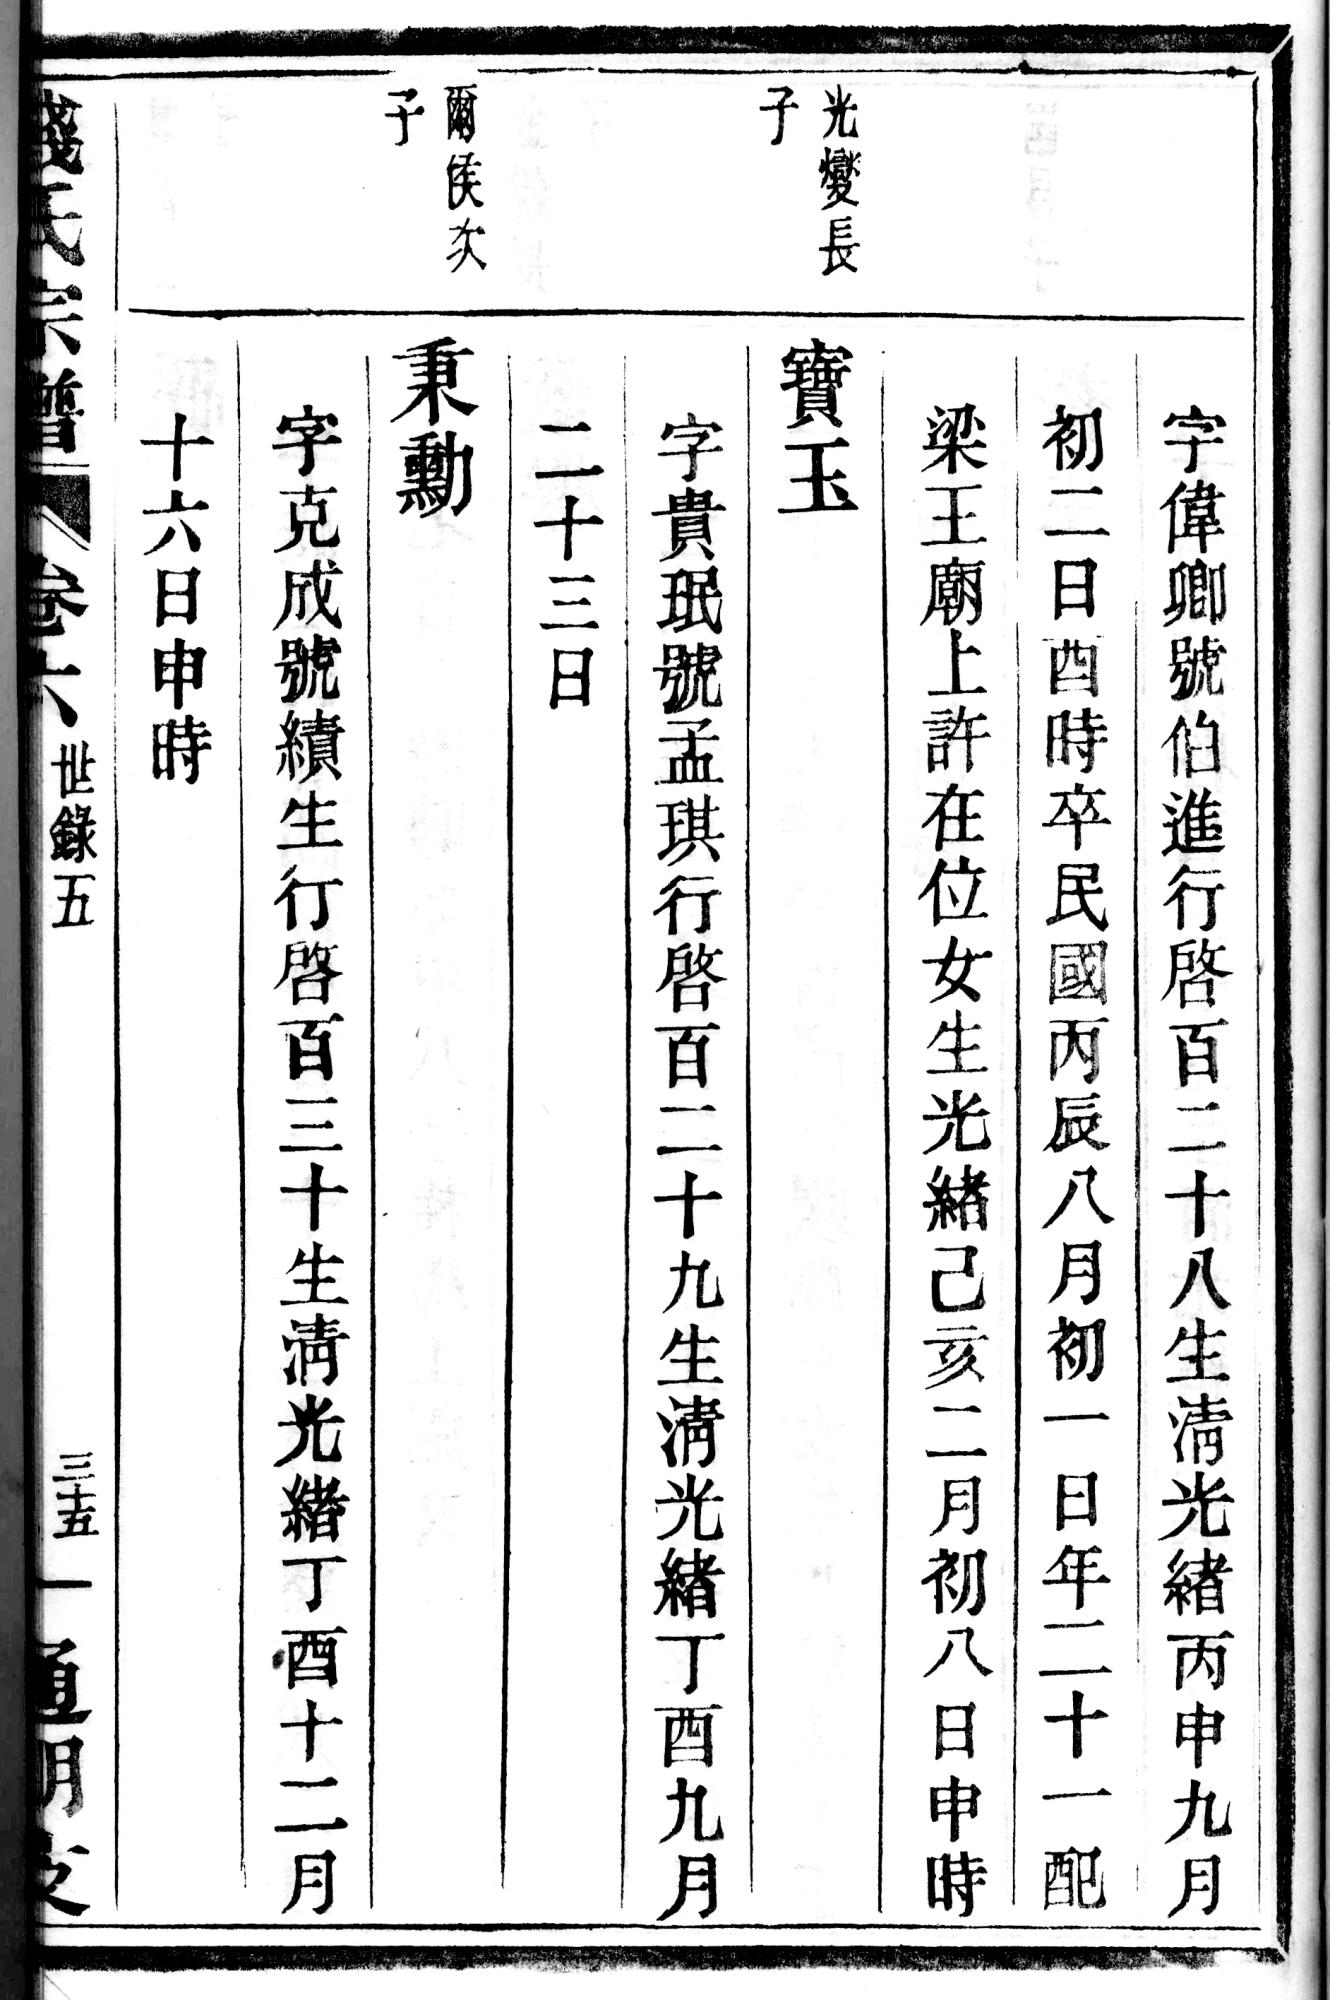 字偉卿號伯進行啓百二十八生淸光緒丙申九月
初二日酉時卒民國丙辰八月初一日年二十一配
梁王廟上許在位女生光緒己亥二月初八日申時
光爕長
子
寶玉
字貴珉號孟琪行啓百二十九生淸光緒丁酉九月
二十三日
爾侯次
子
秉勳
字克成號績生行啓百三十生淸光緒丁酉十二月
十六日申時
錢氏宗譜
卷六
世錄五
三十五
一
通明支